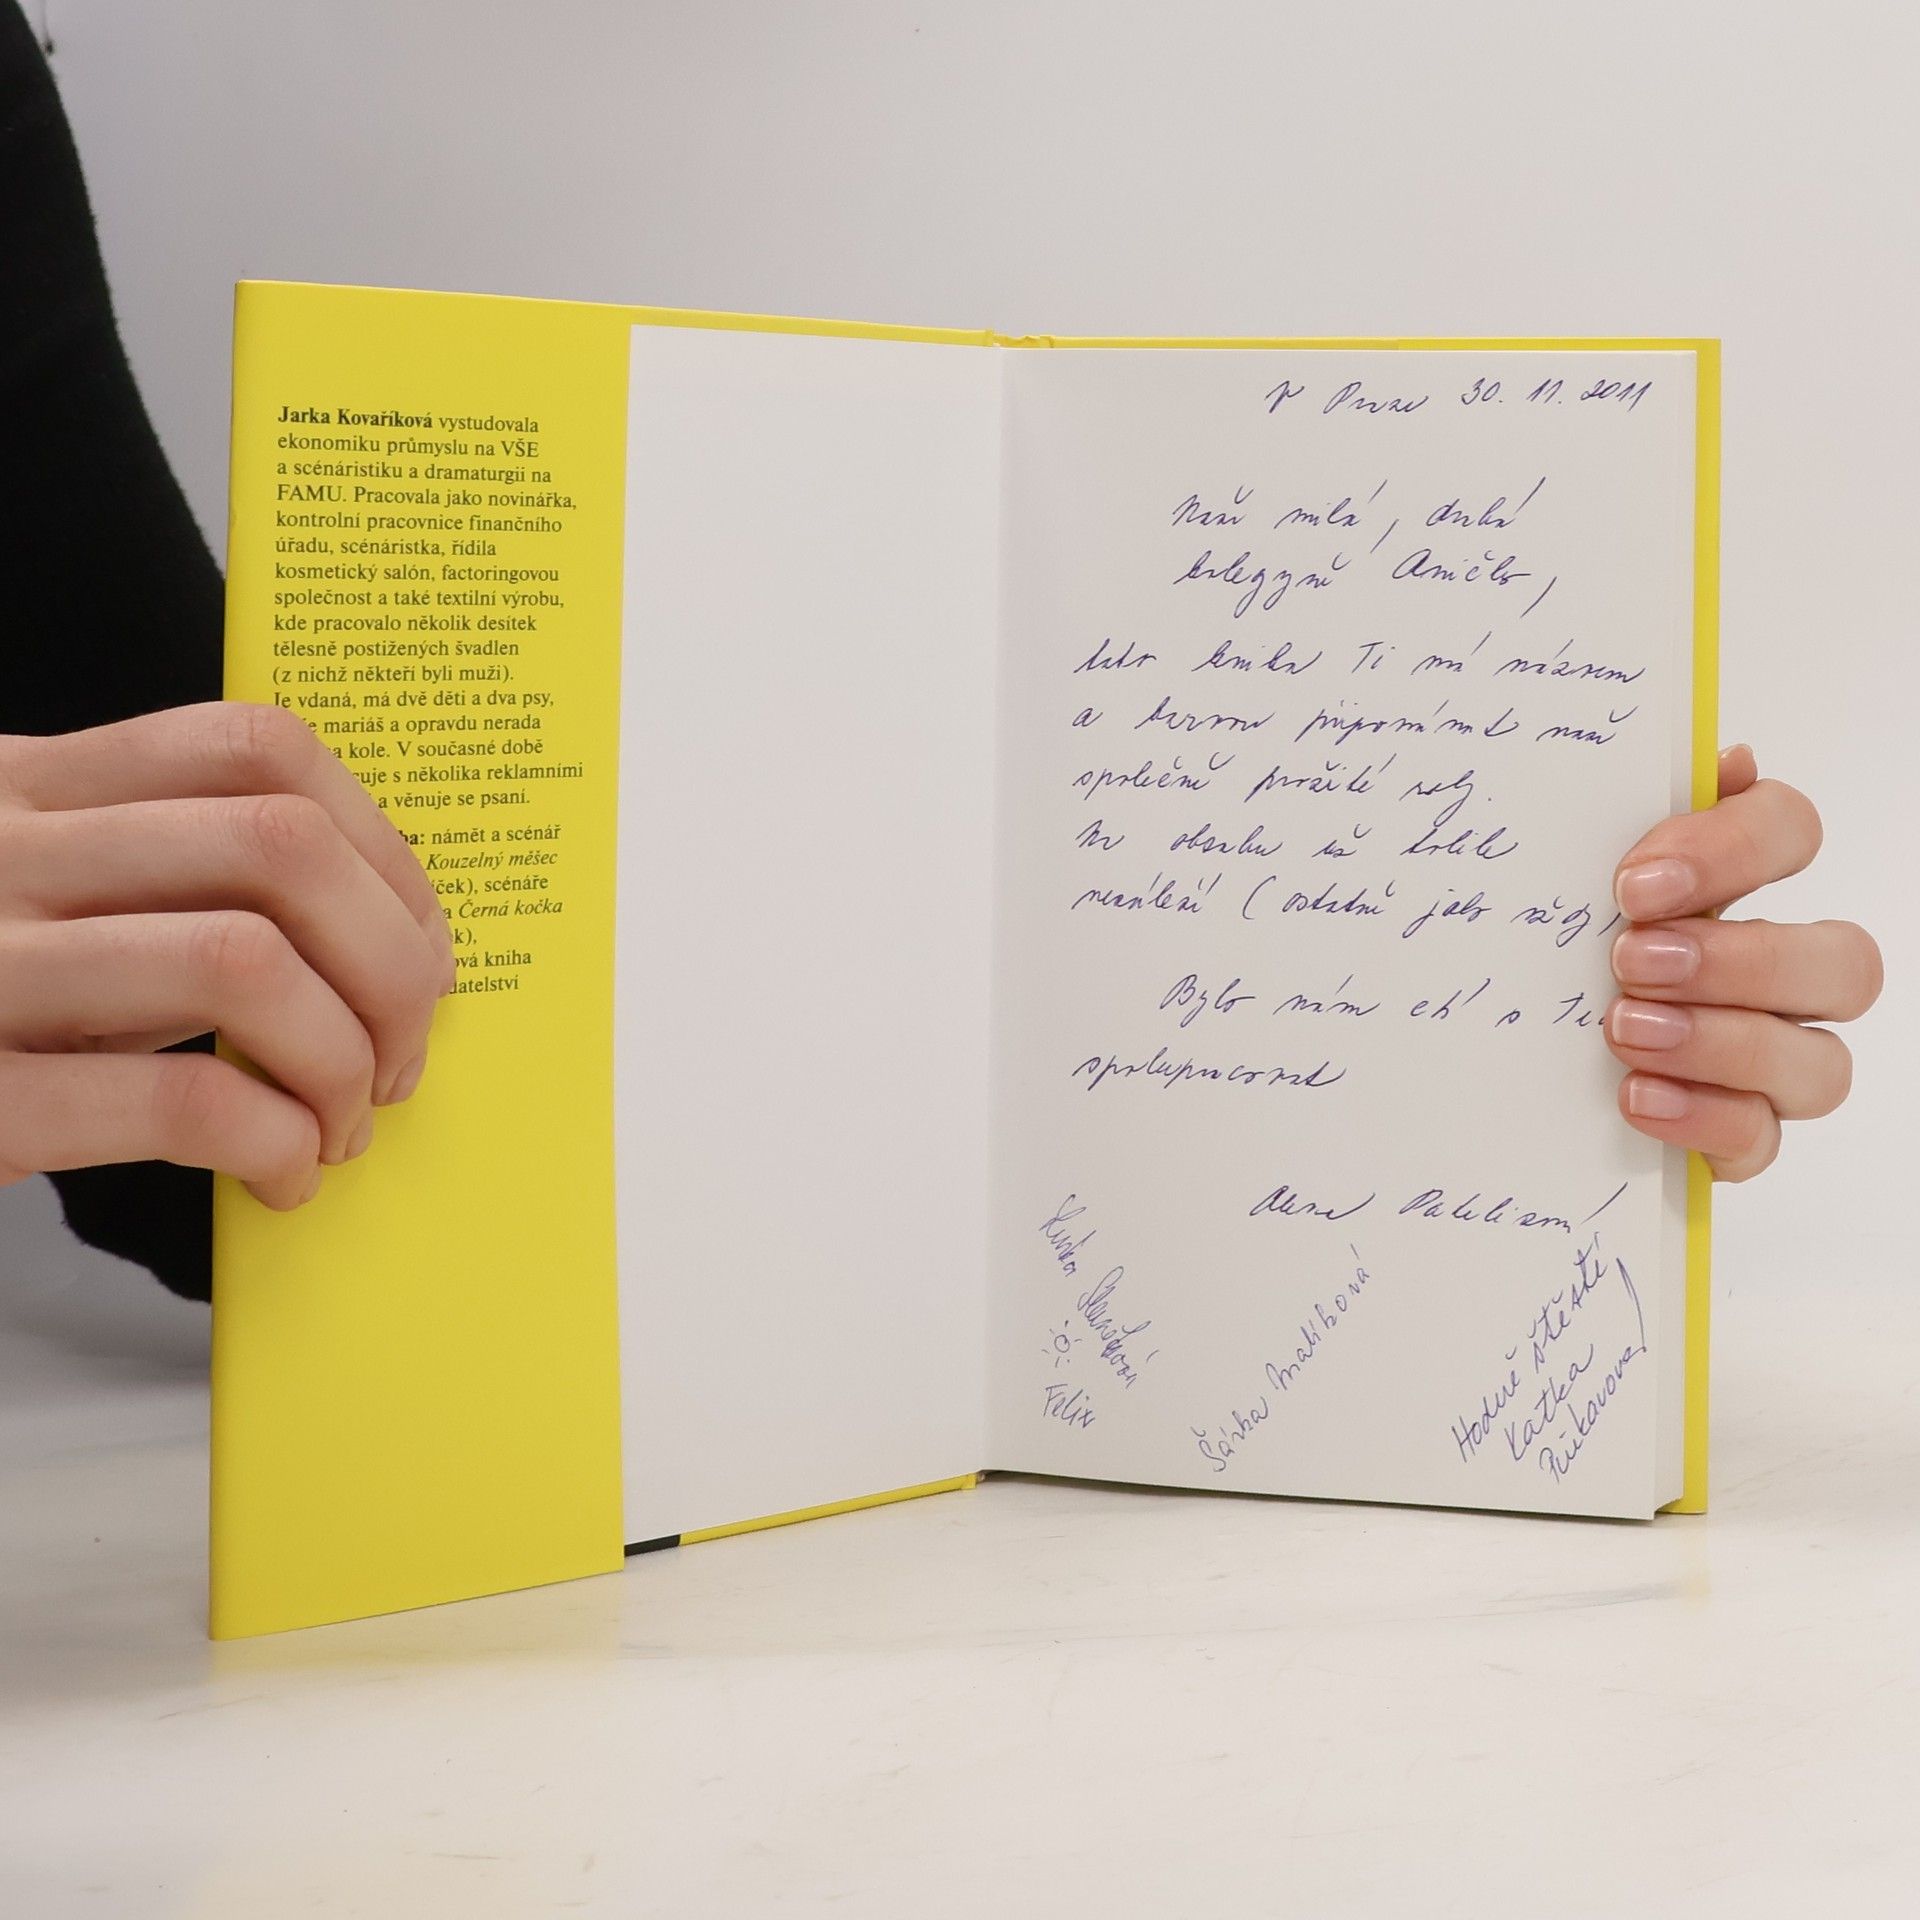 Jarka Kovaříková vystudovala
ekonomiku průmyslu na VŠE
a scénáristiku a dramaturgii na
FAMU. Pracovala jako novinářka,
kontrolní pracovnice finančního
úřadu, scénáristka, řídila
kosmetický salón, factoringovou
společnost a také textilní výrobu,
kde pracovalo několik desítek
tělesně postižených švadlen
(z nichž někteří byli muži).
Je vdaná, má dvě děti a dva psy,
mariáš a opravdu nerada
kole. V současné době
s několika reklamními
a věnuje se psaní.
námět a scénář
Kouzelný měšec
scénáře
a Černá kočka
kniha
V Praze 30. 11. 2011
Naše milá, drahá
kolegyně Aničko,
tato kniha Ti má názvem
a barvou připomínat naše
společně prožité roky.
Na obsahu už tolik
nezáleží (ostatně jako vždy)
Bylo nám ctí s
spolupracovat
Šárka Malíková
Felix
Hodně štěstí
Katka